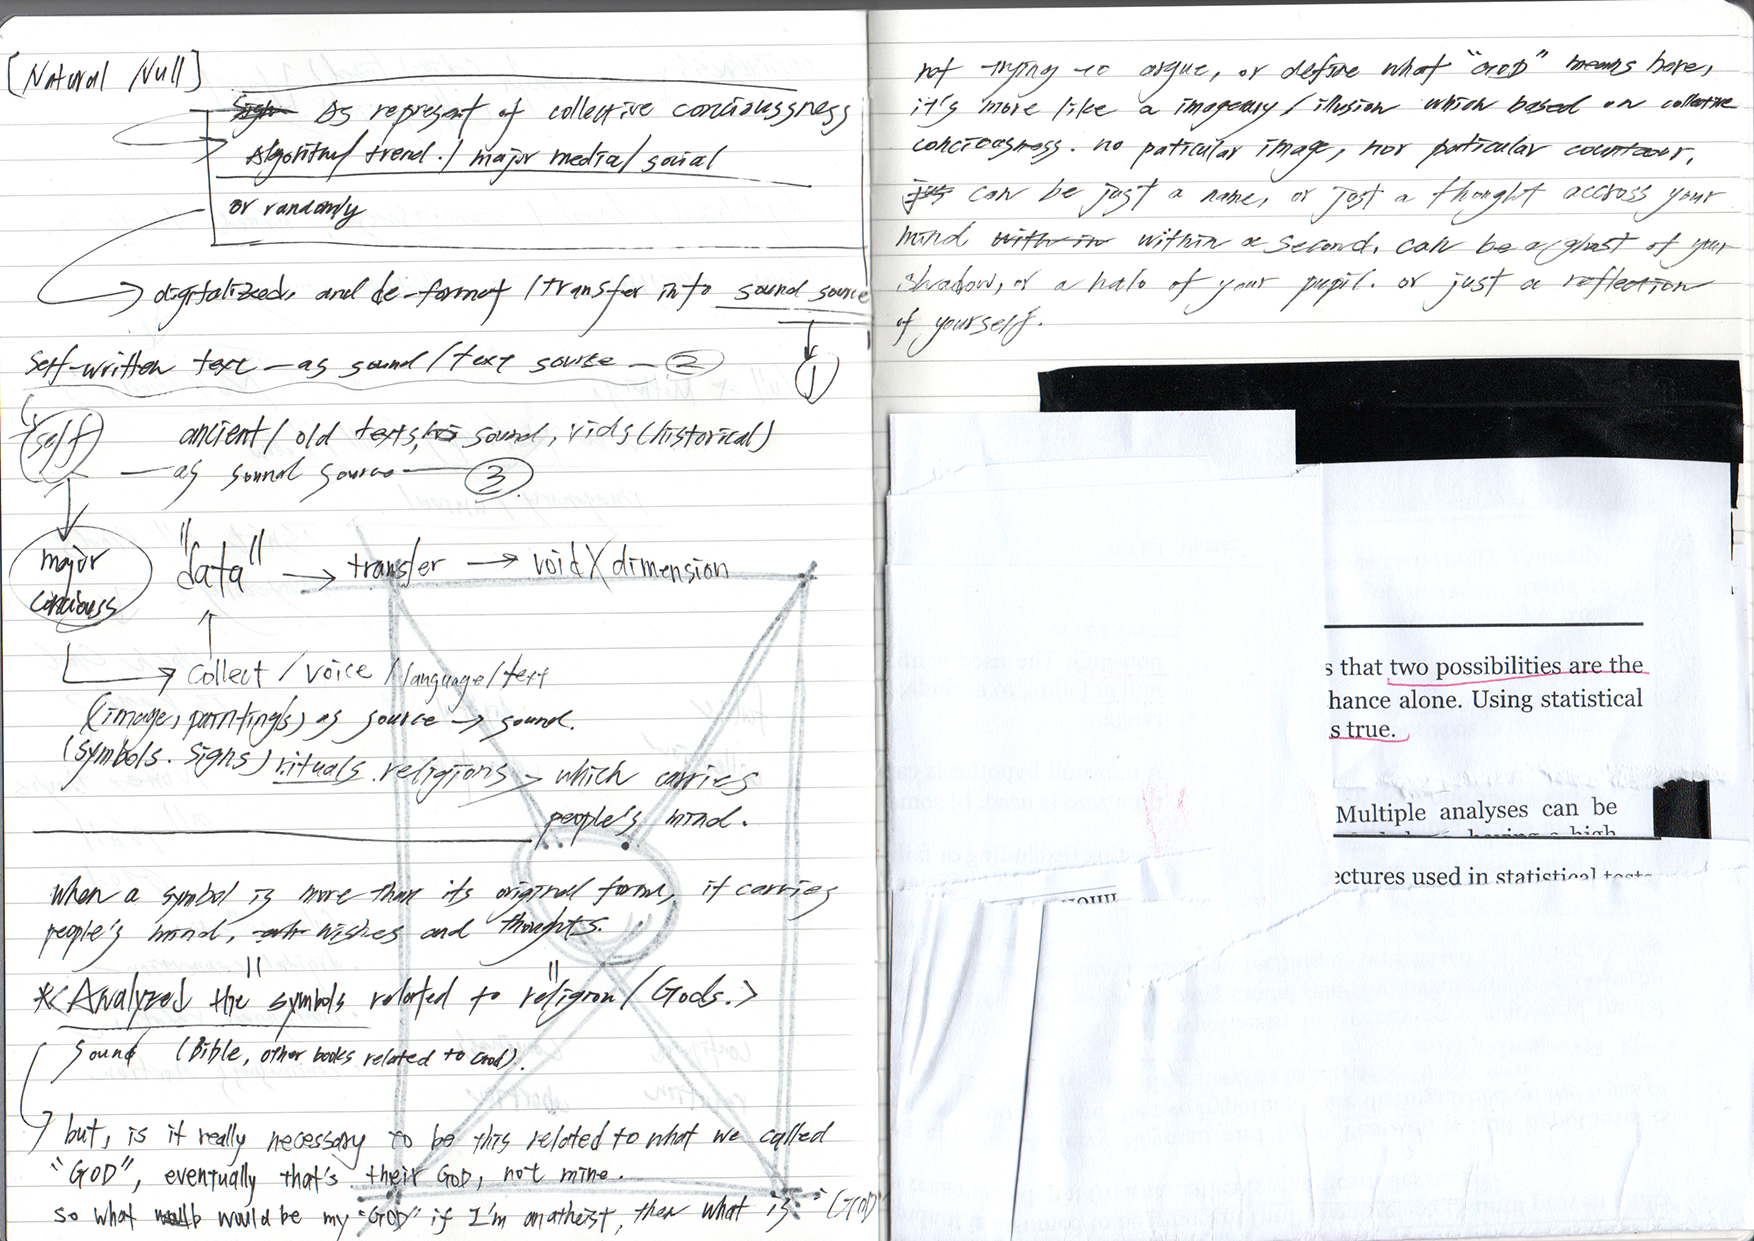 [Natural Null]
As represent of collective conciousness
Algorithm/ trend./ major media/ social
or randomly
digitalized, and de-format / transfer into sound source
1
Self-written text — as sound/text source — 2
(self)
ancient/ old texts, sound, vids (historical)
— as sound source — 3
major conciouss
"data" → transfer → void X dimension
collect / voice / language / text
(image, paintings) as source → sound.
(symbols. signs) rituals religions > which carries
people's mind.
when a symbol is more than its original form, it carries
people's mind, wishes and thoughts.
*<Analyzed the symbols related to religion/ Gods.>
sound (Bible, other books related to God).
but, is it really necessary to be this related to what we called
"GOD", eventually that's their GOD, not mine.
so what would be my "GOD" if I'm an atheist, then what is "GOD"
not trying to argue, or define what "GOD" means here,
it's more like a imageary/ illusion which based on collective
conciosgness. no paticular image, nor particular countour,
can be just a name, or just a thought accross your
mind within a second. can be a ghost of your
shadow, or a halo of your pupil. or just a reflection
of yourself.
s that two possibilities are the
hance alone. Using statistical
s true.
Multiple analyses can be
having a high
ectures used in statistical tests